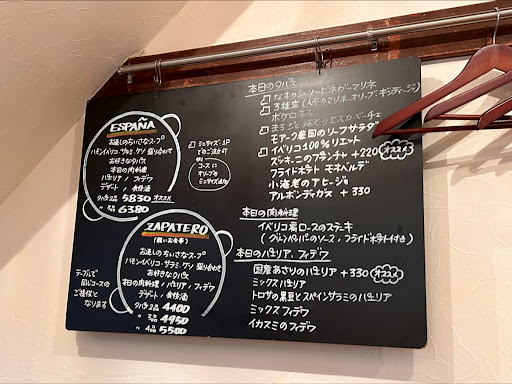 ESPAÑA
お通しのちいさなスープ
ハモンイベリコ・サラミ・ケソ 盛り合わせ
お好きなタパス
本日の肉料理
パエリア / フィデウ
デザート / 食後酒
タパス2品 5830 オススメ
〃 3品 6380
□ミニサイズ・1P
でのご注文可
コースに
オリーブの
ミニサイズ追加
ZAPATERO
(軽いお食事)
お通しのちいさなスープ
ハモンイベリコ・サラミ・ケソ 盛り合わせ
お好きなタパス
本日の肉料理 / パエリア / フィデウ
デザート / 食後酒
タパス2品 4400
〃 3品 4950
〃 4品 5500
テーブルで
同じコースの
ご提供と
なります
本日のタパス
□ なすのシェリービネガーマリネ
□ 3種盛 (人参のマリネ・オリーブ・ギンディージャ)
ポケロネス
□
モアーク農園のリーフサラダ
□ イベリコ100%リエット
ズッキーニのプランチャ +220 オススメ
フライドポテト モホベルデ
小海老のアヒージョ
アルボンディガス +330
本日の肉料理
イベリコ肩ロースのステーキ
(グリーンペッパーのソース、フライドポテト付き)
本日のパエリア、フィデウ
国産あさりのパエリア +330 オススメ
ミックスパエリア
トロサの黒豆とスペインサラミのパエリア
ミックスフィデウ
イカスミのフィデウ